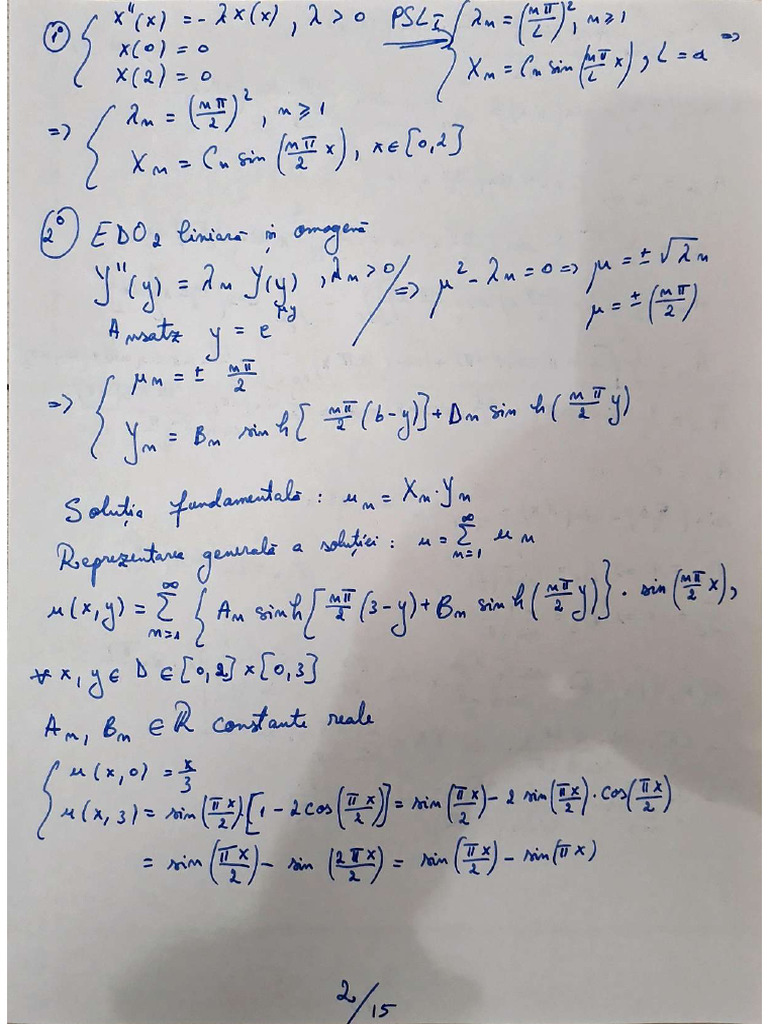 1° { X''(x) = -λX(x), λ > 0 PSL I { λn = (nπ/L)², n ≥ 1
X(0) = 0
X(2) = 0 Xn = Cn sin(nπ/L x), L = a =>
=> { λn = (nπ/2)², n ≥ 1
Xn = Cn sin(nπ/2 x), x ∈ [0,2]
2° EDO₂ liniară și omogenă
Y''(y) = λn Y(y), λn > 0 / => μ² - λn = 0 => μ = ± √λn
Ansatz y = e^{μy} μ = ± (nπ/2)
=> { μn = ± nπ/2
Yn = Bn sinh[nπ/2 (b-y)] + Dn sinh(nπ/2 y)
Soluția fundamentală: un = Xn · Yn
Reprezentarea generală a soluției: u = ∑_{n=1}^{∞} un
u(x,y) = ∑_{n=1}^{∞} { An sinh[nπ/2 (3-y) + Bn sinh(nπ/2 y)} · sin(nπ/2 x),
∀ x, y ∈ D ∈ [0,2] × [0,3]
An, Bn ∈ R constante reale
{ u(x,0) = x/3
u(x,3) = sin(πx/2)·[1 - 2cos(πx/2)] = sin(πx/2) - 2 sin(πx/2)·cos(πx/2)
= sin(πx/2) - sin(2πx/2) = sin(πx/2) - sin(πx)
2/15